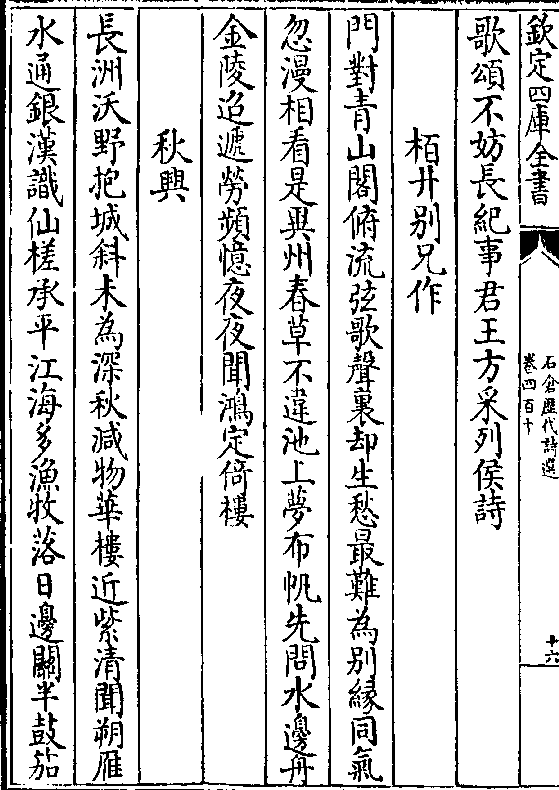 欽定四庫全書
石倉歷代詩選
卷四百十
十六
歌頌不妨長紀事君王方采列侯詩
栢井别兄作
門對青山閣俯流弦歌聲裏却生愁最難為别緣同氣
忽漫相看是異州春草不違池上夢布帆先問水邊舟
金陵迢遞勞頻憶夜夜聞鴻定倚樓
秋興
長洲沃野抱城斜未為深秋減物華樓近紫清聞朔雁
水通銀漢識仙槎承平江海多漁牧落日邊關半鼓笳